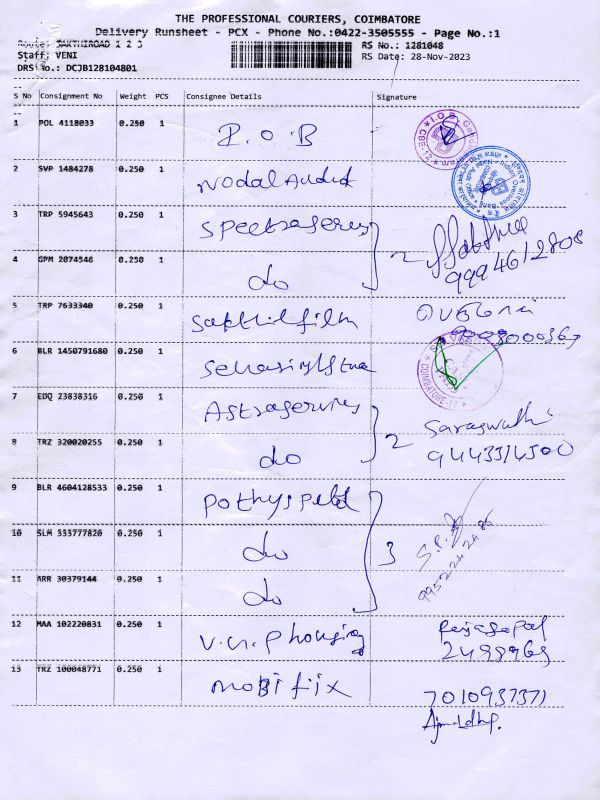 THE PROFESSIONAL COURIERS, COIMBATORE
Delivery Runsheet - PCX - Phone No.:0422-3505555 - Page No.:1
Route: SAKTHIROAD 1 2 3
RS No.: 1281048
Staff: VENI
RS Date: 28-Nov-2023
DRS No.: DCJB128104801
S No Consignment No Weight PCS Consignee Details Signature
1 POL 4118033 0.250 1 I.O.B
2 SVP 1484278 0.250 1 Nodal Audit
3 TRP 5945643 0.250 1 Spectraserus
4 GPM 2074546 0.250 1 do } 2 9994612808
5 TRP 7633340 0.250 1 Sakthi film
6 BLR 1450791680 0.250 1
COIMBATORE-12
7 EDQ 23838316 0.250 1 Astraserives
8 TRZ 320020255 0.250 1 do } 2 Saraswathi
9443314500
9 BLR 4604128533 0.250 1 Pothys
10 SLM 333777820 0.250 1 do } 3 S.P.
9952242486
11 ARR 30379144 0.250 1 do
12 MAA 102220831 0.250 1 V.G.P housing Rajagopal
2498969
13 TRZ 100048771 0.250 1 mobi fiix 7010937371